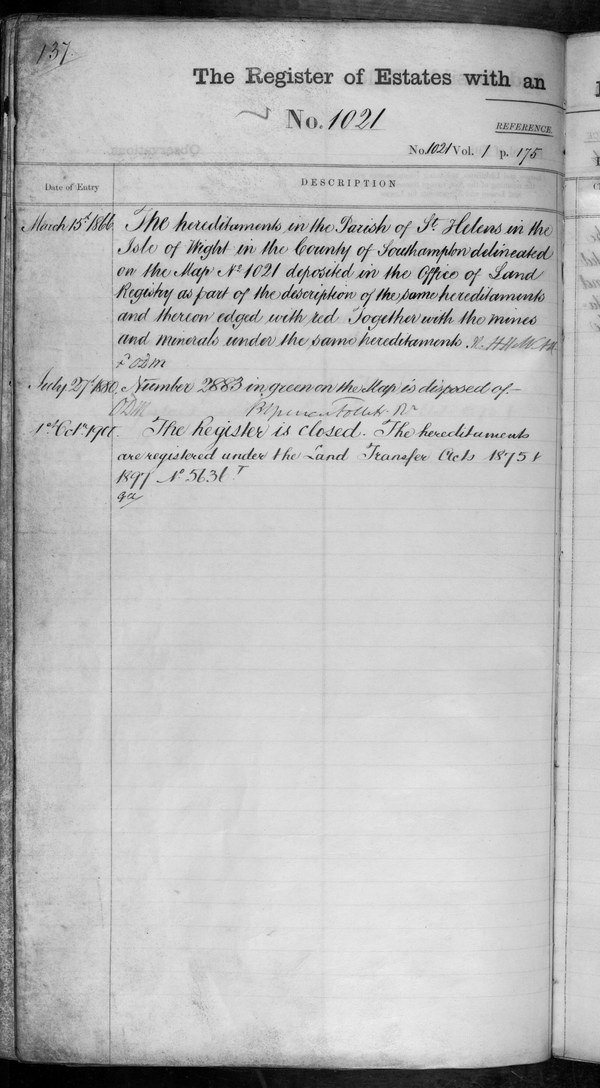 137
The Register of Estates with an
No. 1021
REFERENCE.
No. 1021 Vol. 1 p. 175
Date of Entry
DESCRIPTION
March 15th 1866 The hereditaments in the Parish of St. Helens in the
Isle of Wight in the County of Southampton delineated
on the Map No 1021 deposited in the Office of Land
Registry as part of the description of the same hereditaments
and thereon edged with red Together with the mines
and minerals under the same hereditaments
July 27th 1880. Number 2883 in green on the Map is disposed of.—
ODM B Spencer Follett Rr
1st Octr 1901. The Register is closed. The hereditaments
are registered under the Land Transfer Acts 1875 &
1897 No 5636 T